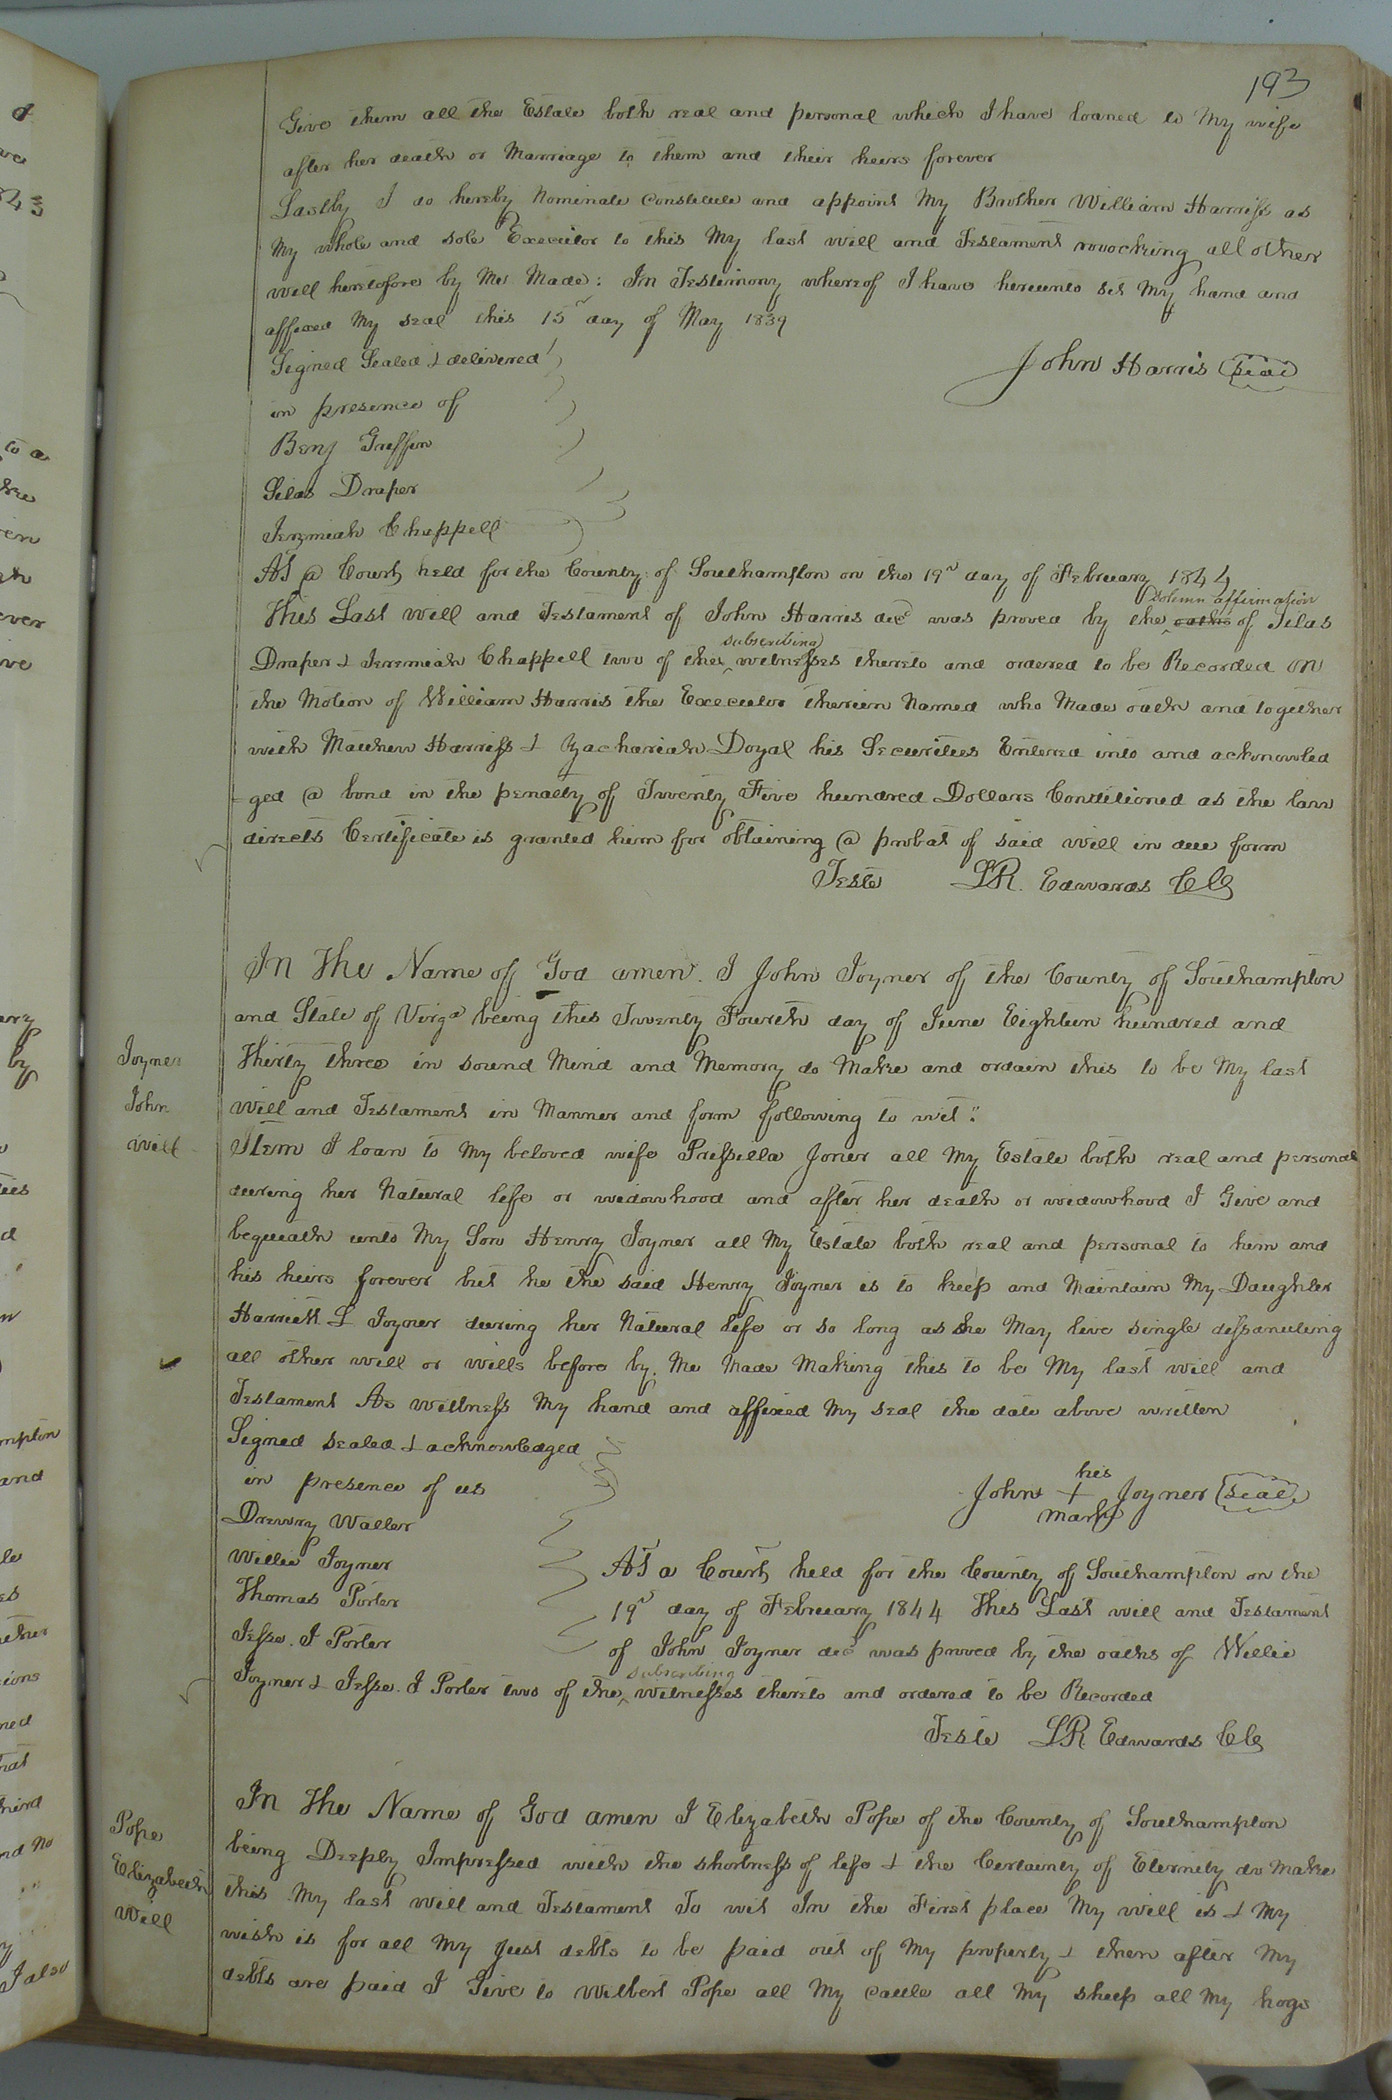 193
Give them all the Estate both real and personal which I have loaned to My wife
after her death or Marriage to them and their heirs forever
Lastly I do hereby Nominate constitute and appoint My Brother William Harriss as
My whole and sole Executor to this My last will and Testament rovocking all other
will heretofore by Me Made: In Testimony whereof I have hereunto set My hand and
affixed My seal this 15th day of May 1839
Signed Sealed & delivered
John Harris seal
in presence of
Benj Griffin
Silas Draper
Jeremiah Chappell
At @ Court held for the County of Southampton on the 19th day of February 1844
solemn affirmation
This Last will and Testament of John Harris decd was proved by the oaths of Silas
subscribing
Draper & Jeremiah Chappell two of the witnesses thereto and ordered to be Recorded on
the Motion of William Harris the Executor therein Named who Made oath and together
with Matthew Harriss & Zachariah Doyal his Securities Entered into and acknowled
ged @ bond in the penalty of Twenty Five hundred Dollars Conditioned as the law
directs Certificate is granted him for obtaining @ probat of said will in due form
Teste LR. Edwards Clk
In The Name of God amen. I John Joyner of the County of Southampton
and State of Virga being this Twenty Fourth day of June Eighteen hundred and
Joyner
Thirty three in sound Mind and Memory do Make and ordain this to be My last
John
will and Testament in Manner and form following to wit:
will
Item I loan to My beloved wife Prissilla Joner all My Estate both real and personal
during her Natural life or widowhood and after her death or widowhood I Give and
bequeath unto My Son Henry Joyner all My Estate both real and personal to him and
his heirs forever but he the said Henry Joyner is to keep and Maintain My Daughter
Harriett L Joyner during her Natural life or so long as she May live single dissanuling
all other will or wills before by Me Made Making this to be My last will and
Testament As wittness My hand and affixed My seal the date above written
Signed sealed & acknowledged
in presence of us
his
John + Joyner seal
mark
Drewry Waller
Willie Joyner
Thomas Porter
Jesse. J Porter
At a Court held for the County of Southampton on the
19th day of February 1844 This Last will and Testament
of John Joyner decd was proved by the oaths of Willie
subscribing
Joyner & Jesse. J Porter two of the witnesses thereto and ordered to be Recorded
Teste LR Edwards Clk
In The Name of God amen I Elizabeth Pope of the County of Southampton
Pope
being Deeply Impressed with the shortness of life & the Certainty of Eternity do Make
Elizabeth
this My last will and Testament To wit In the First place My will is & My
Will
wish is for all My Just debts to be paid out of My property & then after My
debts are paid I Give to Wilbert Pope all My cattle all My sheep all My hogs